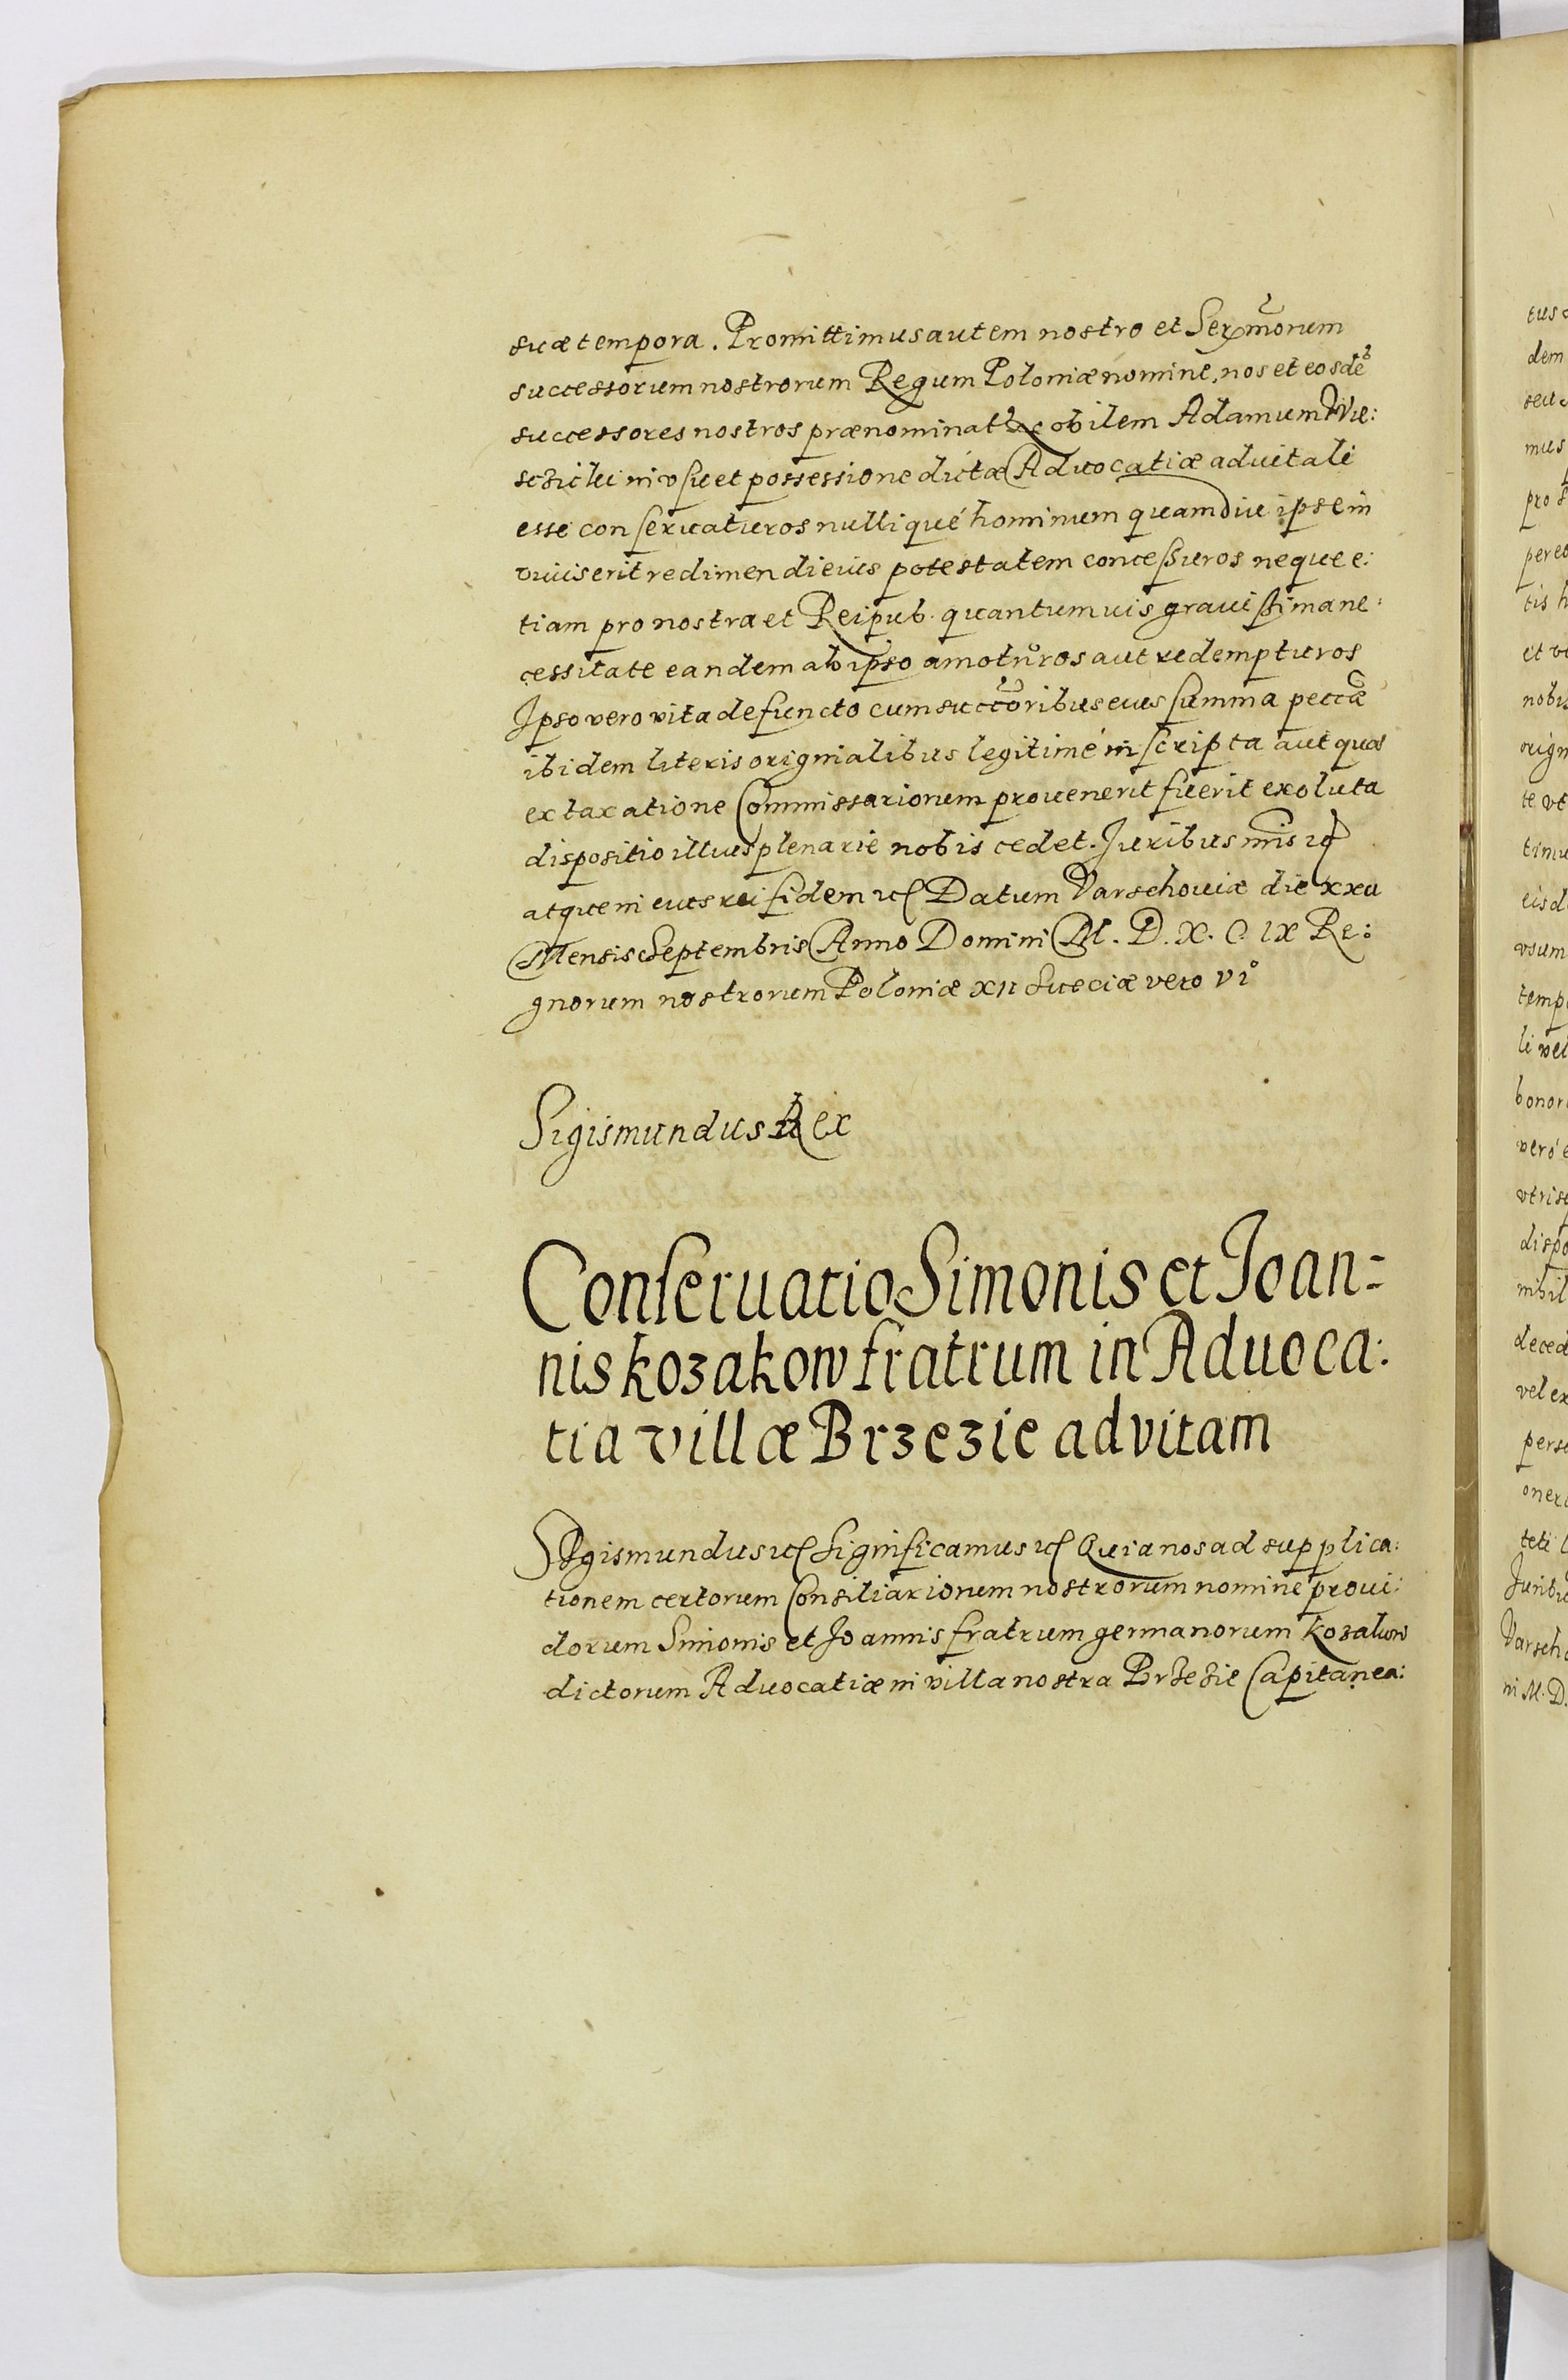 suæ tempora. Promittimus autem nostro et Serm̃orum
successorum nostrorum Regum Poloniæ nomine, nos et eosdẽ
successores nostros prænominat obilem Adamum
in vsu et possessione dictæ Aduocatiæ aduitali
esse conseruaturos nullique hominum quamdiu ipse in
viuis erit redimendi eius potestatem concessuros neque e:
tiam pro nostra et Reipub. quantumuis grauissima ne:
cessitate eandem ab ipso amoturos aut redempturos
Ipso vero vita defuncto cum succõribus eius summa pecc̃æ
ibidem literis originalibus legitimé inscripta aut quæ
ex taxatione Commissariorum prouenerit fuerit exoluta
dispositio illius plenarie nobis cedet. Juribus nr̃is
atque in eius rei fidem Datum Varschouiæ die
Mensis Septembris Anno Domini M. D. X. C. IX Re:
gnorum nostrorum Poloniæ XII Sueciæ vero VI°
Sigismundus Rex
Conseruatio Simonis et Joan=
nis Kozakow fratrum in Aduoca:
tia villæ Brzezie ad vitam
Sigismundus Significamus Quia nos ad supplica:
tionem certorum Consiliariorum nostrorum nomine proui:
dorum Simonis et Joannis fratrum germanorum
dictorum Aduocatiæ in villa nostra Brzezie Capitanea:
eus
dem
seu
mus
pro
pere
tis
et
nobis
te vt
eisd
vsum
temp
li vel
bonor
vero
vtris
dispo
nihil
deced
vel ex
perso
oner
teti
Juribu
Varscho
ni M. D.